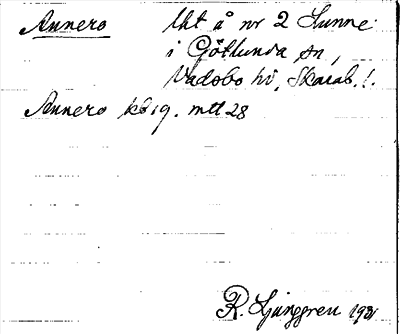 Annero lht å nr 2 Sunne
i Götlunda sn,
Vadsbo hd, Skarab. l.
Annero kb 19. mtl 28
R. Ljunggren 1931